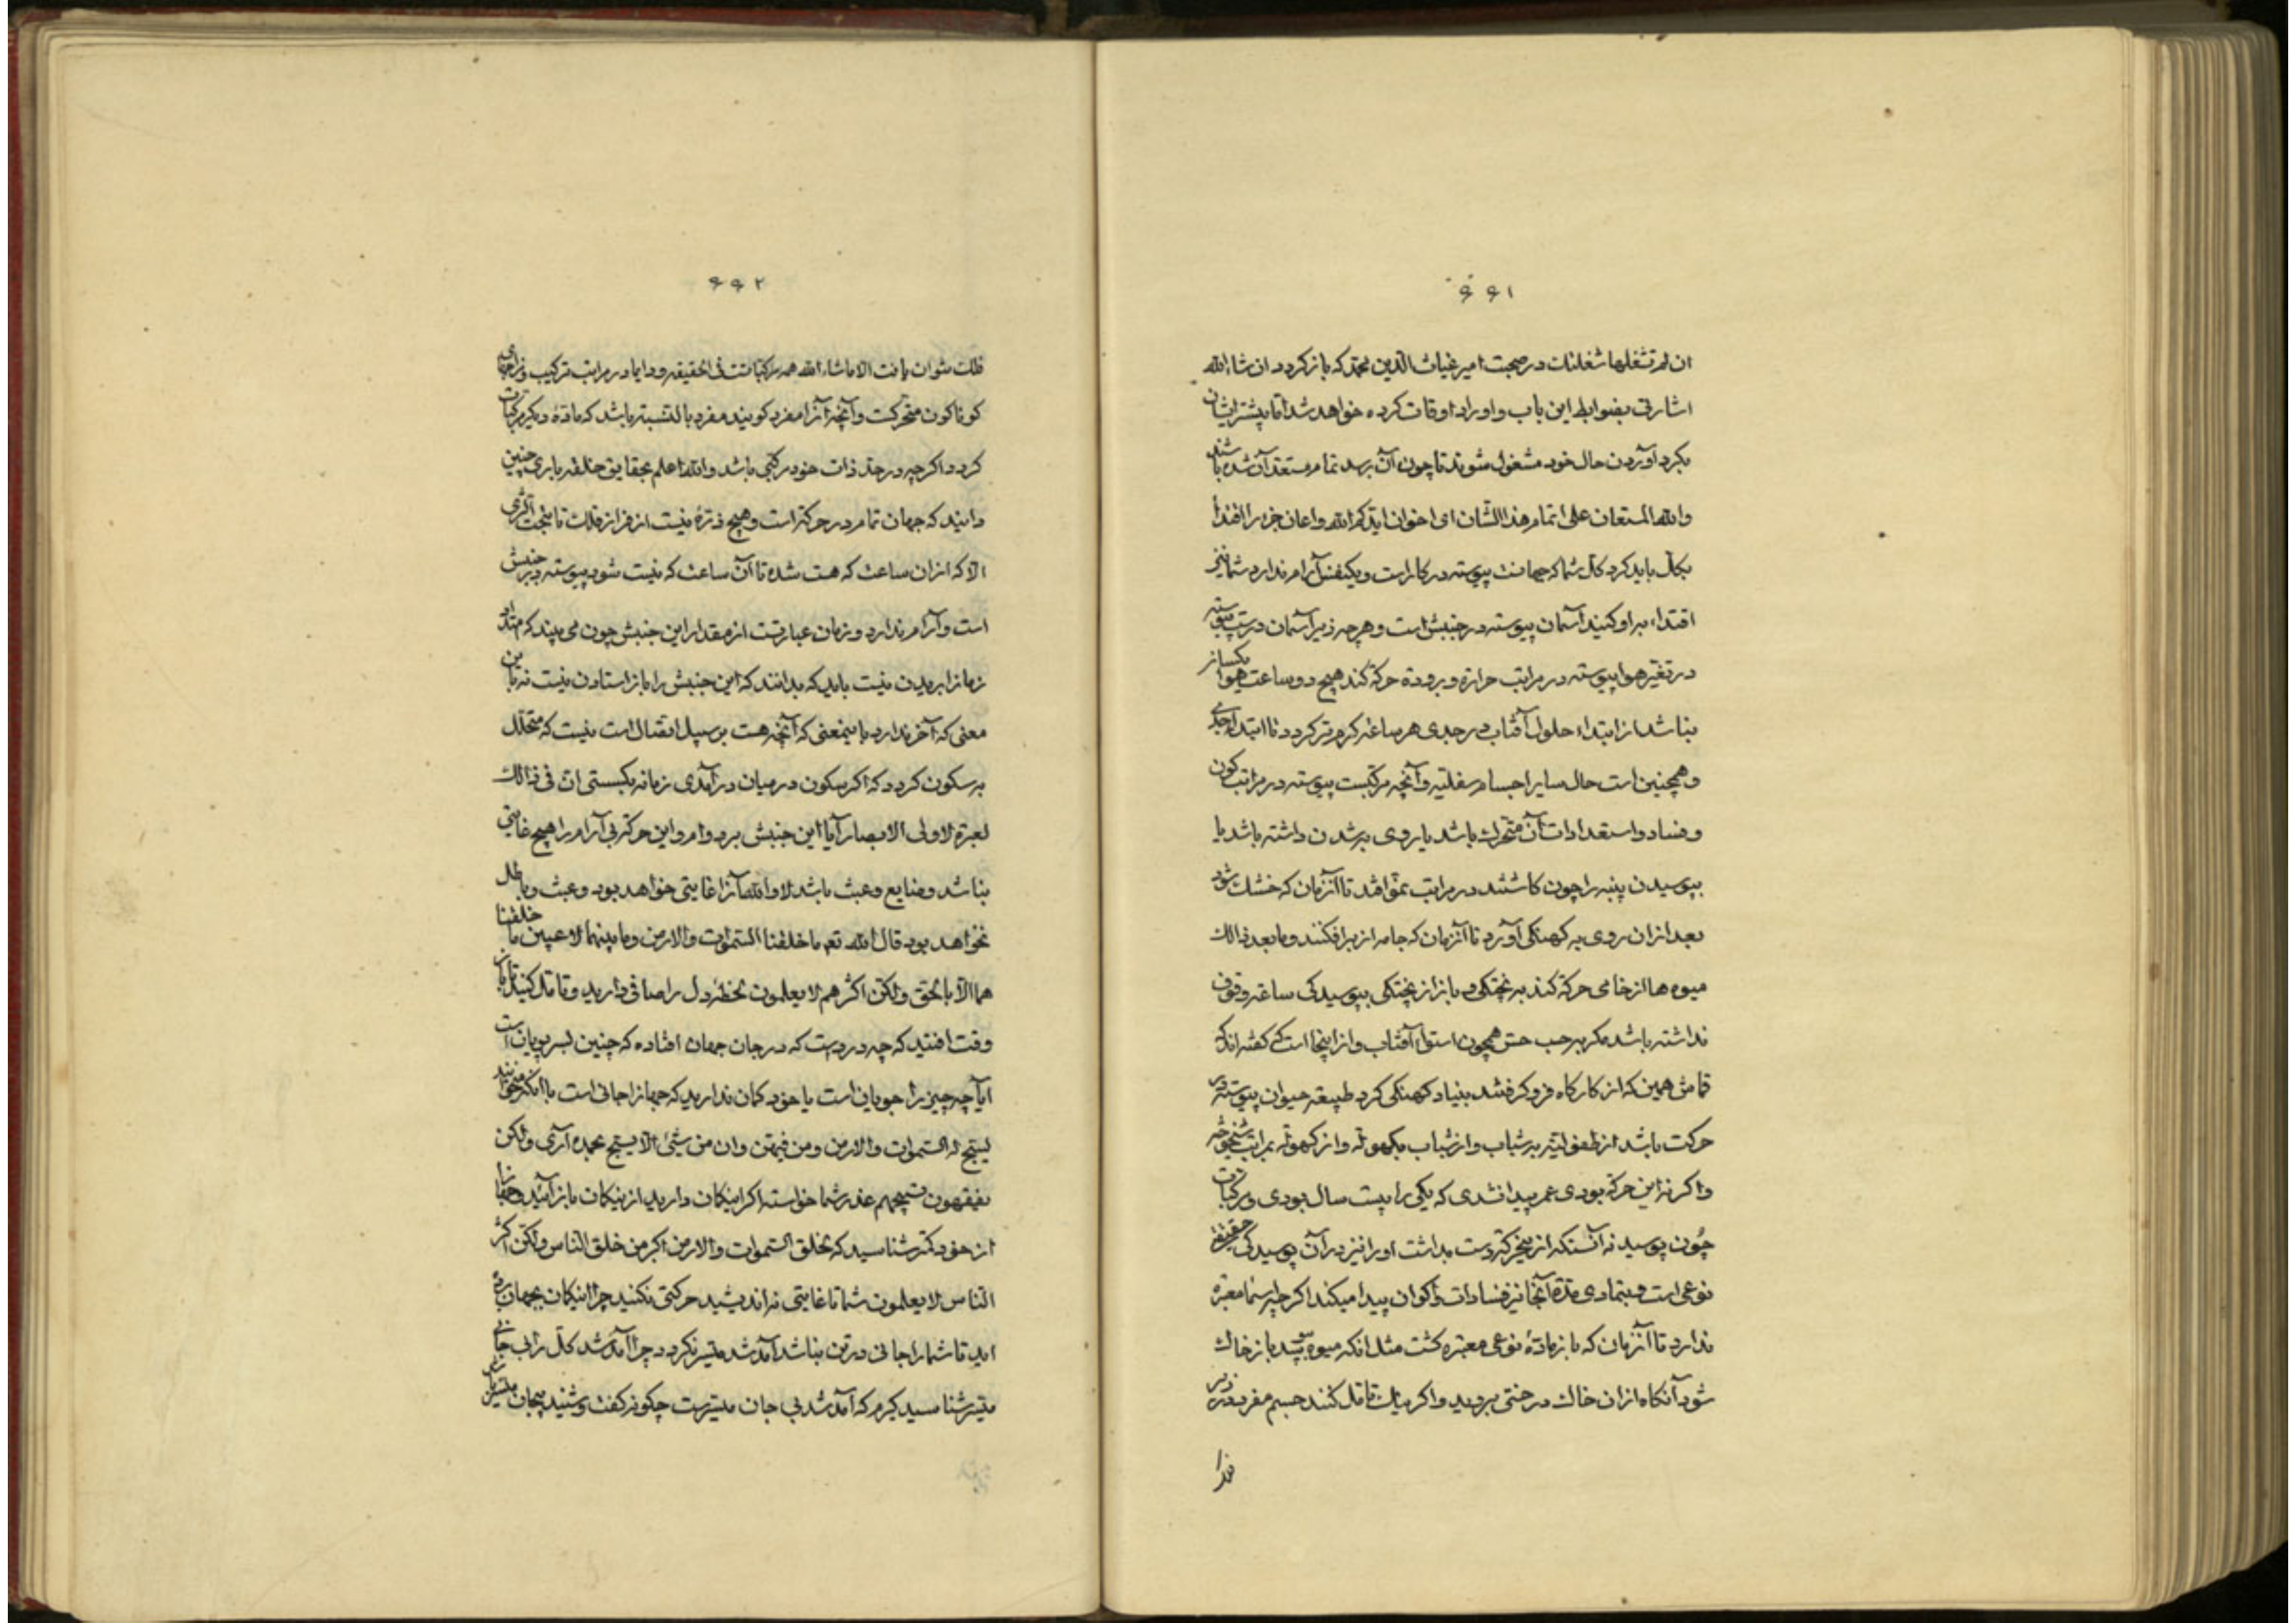 ۶۶۱
ان لم تشغلها شغلتك در صحبت امیر غیاث الدین محمد که بازکردد ان شاء الله
اشارتی بضوابط این باب و اوراد اوقات کرده خواهد شد اما پیشتر ایشان
بکرد آوردن حال خود مشغول شوند تا چون آن برسد تمام مستعد آن شده باشند
والله المستعان علی اتمام هذا الشان ای اخوان ایدکم الله واعان
بکل باید کرد کل شما که جهانت پیوسته در کار است و یکنفس آرام ندارد شما نیز
اقتداء براو کنید آسمان پیوسته در جنبش است و هرچه زیر آسمان درست پیوسته
در تغیر هوا پیوسته در مراتب حرارة و برودة حرکة کند هیچ دو ساعت هوا یکسان
نباشد از ابتداء حلول آفتاب در جدی هر ساعة کرم تر کردد تا ابتداء
و همچنین است حال سایر اجسام سفلیه و آنچه مرکبست پیوسته در مراتب کون
و فساد و استعدادات آن متحرک باشد یا روی به شدن داشته باشد یا
بپوسیدن پنبه را چون کاشتند در مراتب نمو افتد تا آنزمان که خشک شود
بعد ازان روی به کهنکی آورد تا آنزمان که جامه از بر افکنند و ما بعد ذالک
میوه ها از خامی حرکة کند به پختکی و باز از پختکی بپوسیدکی ساعة وقوف
نداشته باشد مکر به حسب حس همچون استواء آفتاب و از اینجا است که کفته اند که
قماش همین که از کارکاه فرو کرفتند بنیاد کهنکی کرد طبیعة حیوان پیوسته در
حرکت باشد از طفولیته به شباب و از شباب بکهولة و از کهولة بمراتب شیخوخة
و اکر نه این حرکة بودی عمر پیدا نشدی که یکی را بیست سال بودی و مرکبات
چون پوسید نه آنستکه از حرکة دست بداشت او را نیز در آن پوسیدکی
نوعی است و بتمادی مدة آنجا نیز فسادات و اکوان پیدا میکند اکر چه اسما معتبره
ندارد تا آنزمان که باز مادۀ نوعی معتبره کشت مثل انکه میوه پوسید باز خاک
شود آنکاه ازان خاک درختی بروید و اکر نیک تامل کنند جسم مفرد در
۶۶۲
فلک نتوان یافت الا ماشاء الله همه مرکباتند فی الحقیقه و دایما در مراتب ترکیب و
کوناکون متحرکست و آنچه آنرا مفرد کویند مفرد بالنسبة باشد که مادۀ دیکر مرکبات
کردد اکرچه در حد ذات خود مرکبی باشد والله اعلم بحقایق خلقه باری چنین
دانید که جهان تمام در حرکة است و هیچ ذرۀ نیست از فراز فلک تا تحت الثری
الا که ازان ساعت که هست شده تا آن ساعت که نیست شود پیوسته در جنبش
است و آرام ندارد و زمان عبارتست از مقدار این جنبش چون می بیند که امتداد
زمانرا بریدن نیست باید که بدانند که این جنبش را باز استادن نیست نه باین
معنی که آخر ندارد باینمعنی که آنچه هست بر سبیل اتصال است نیست که متخلل
به سکون کردد که اکر سکون در میان درآمدی زمانه بکسستی ان فی ذالک
لعبرة لاولی الابصار آیا این جنبش بر دوام و این حرکة بی آرام را هیچ غایتی
نباشد و ضایع و عبث باشد لا والله آنرا غایتی خواهد بود و عبث و باطل
نخواهد بود قال الله تعم ما خلقنا السموات والارض وما بینهما لاعبین ما خلقنا
هما الا بالحق ولکن اکثرهم لا یعلمون لحظۀ دل را صافی دارید و تامل کنید تا بآن
وقت افتید که چه دردست که در جان جهان افتاده که چنین بسر پویانست
آیا چه چیز را جویان است یا خود کمان ندارید که جهانرا جانی است با آنکه میخوانید
یسبح له السموات والارض ومن فیهن وان من شیئ الا یسبح بحمده آری ولکن
یفقهون تسبیحهم عذر شما خواسته اکر اینکمان دارید ازینکمان بازآئید و جهانرا
از خود کمتر شناسید که لخلق السموات والارض اکبر من خلق الناس ولکن اکثر
الناس لا یعلمون شما تا غایتی نه اندیشید حرکتی نکنید چرا اینکمان بجهان بردۀ
اید تا شما را جانی در تن نباشد آمد شد میسر نکردد چرا آمد شد کل را بی جانی
میسر شناسید کیرم که آمد شد بی جان میسرست چکونه کفت و شنید بیجان میسر